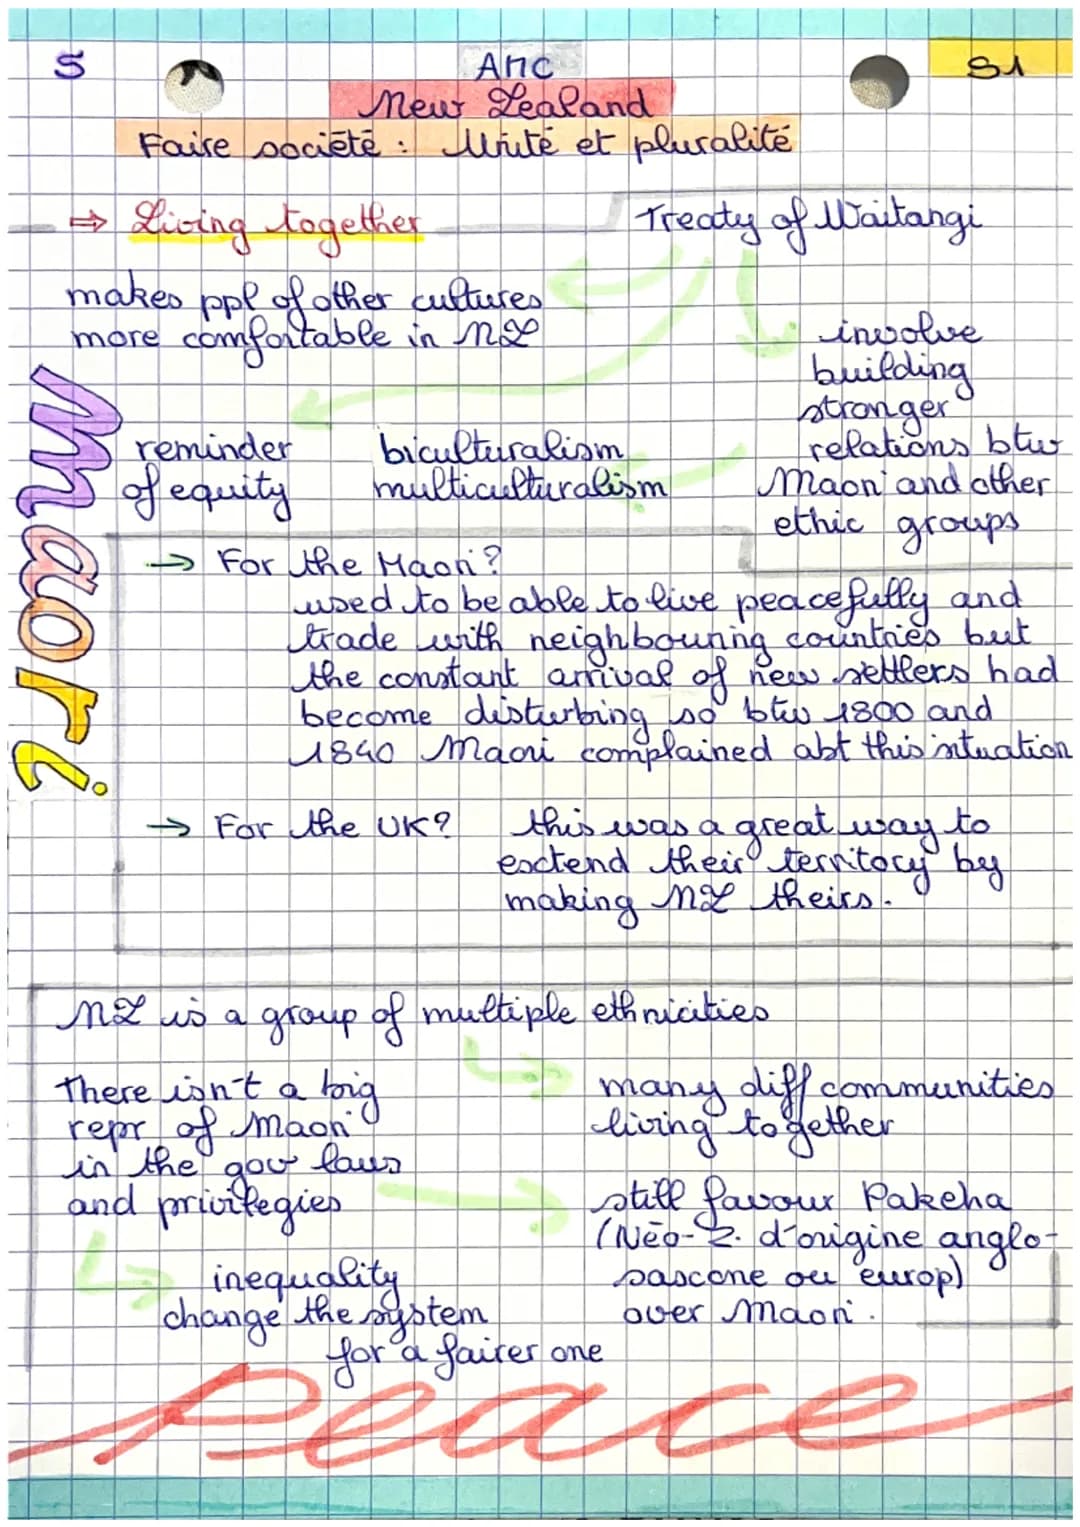 S
AMC
S1
New Zealand
Faire société : Unité et pluralité
⇒ Living together
Treaty of Waitangi
makes ppl of other cultures
more comfortable in NZ
involve
building
stronger
relations btw
Maori and other
ethic groups
reminder
of equity
biculturalism
multiculturalism
Maori
→ For the Maori?
used to be able to live peacefully and
trade with neighbouring countries but
the constant arrival of new settlers had
become disturbing so btw 1800 and
1840 Maori complained abt this situation
→ For the UK?
this was a great way to
extend their territory by
making NZ theirs.
NZ is a group of multiple ethnicities
There isn't a big
repr of Maori
in the gov laws
and privilegies
many diff communities
living together
still favour Pakeha
(Néo-Z. d'origine anglo-
saxone ou europ)
over Maori.
inequality
change the system
for a fairer one
Peace